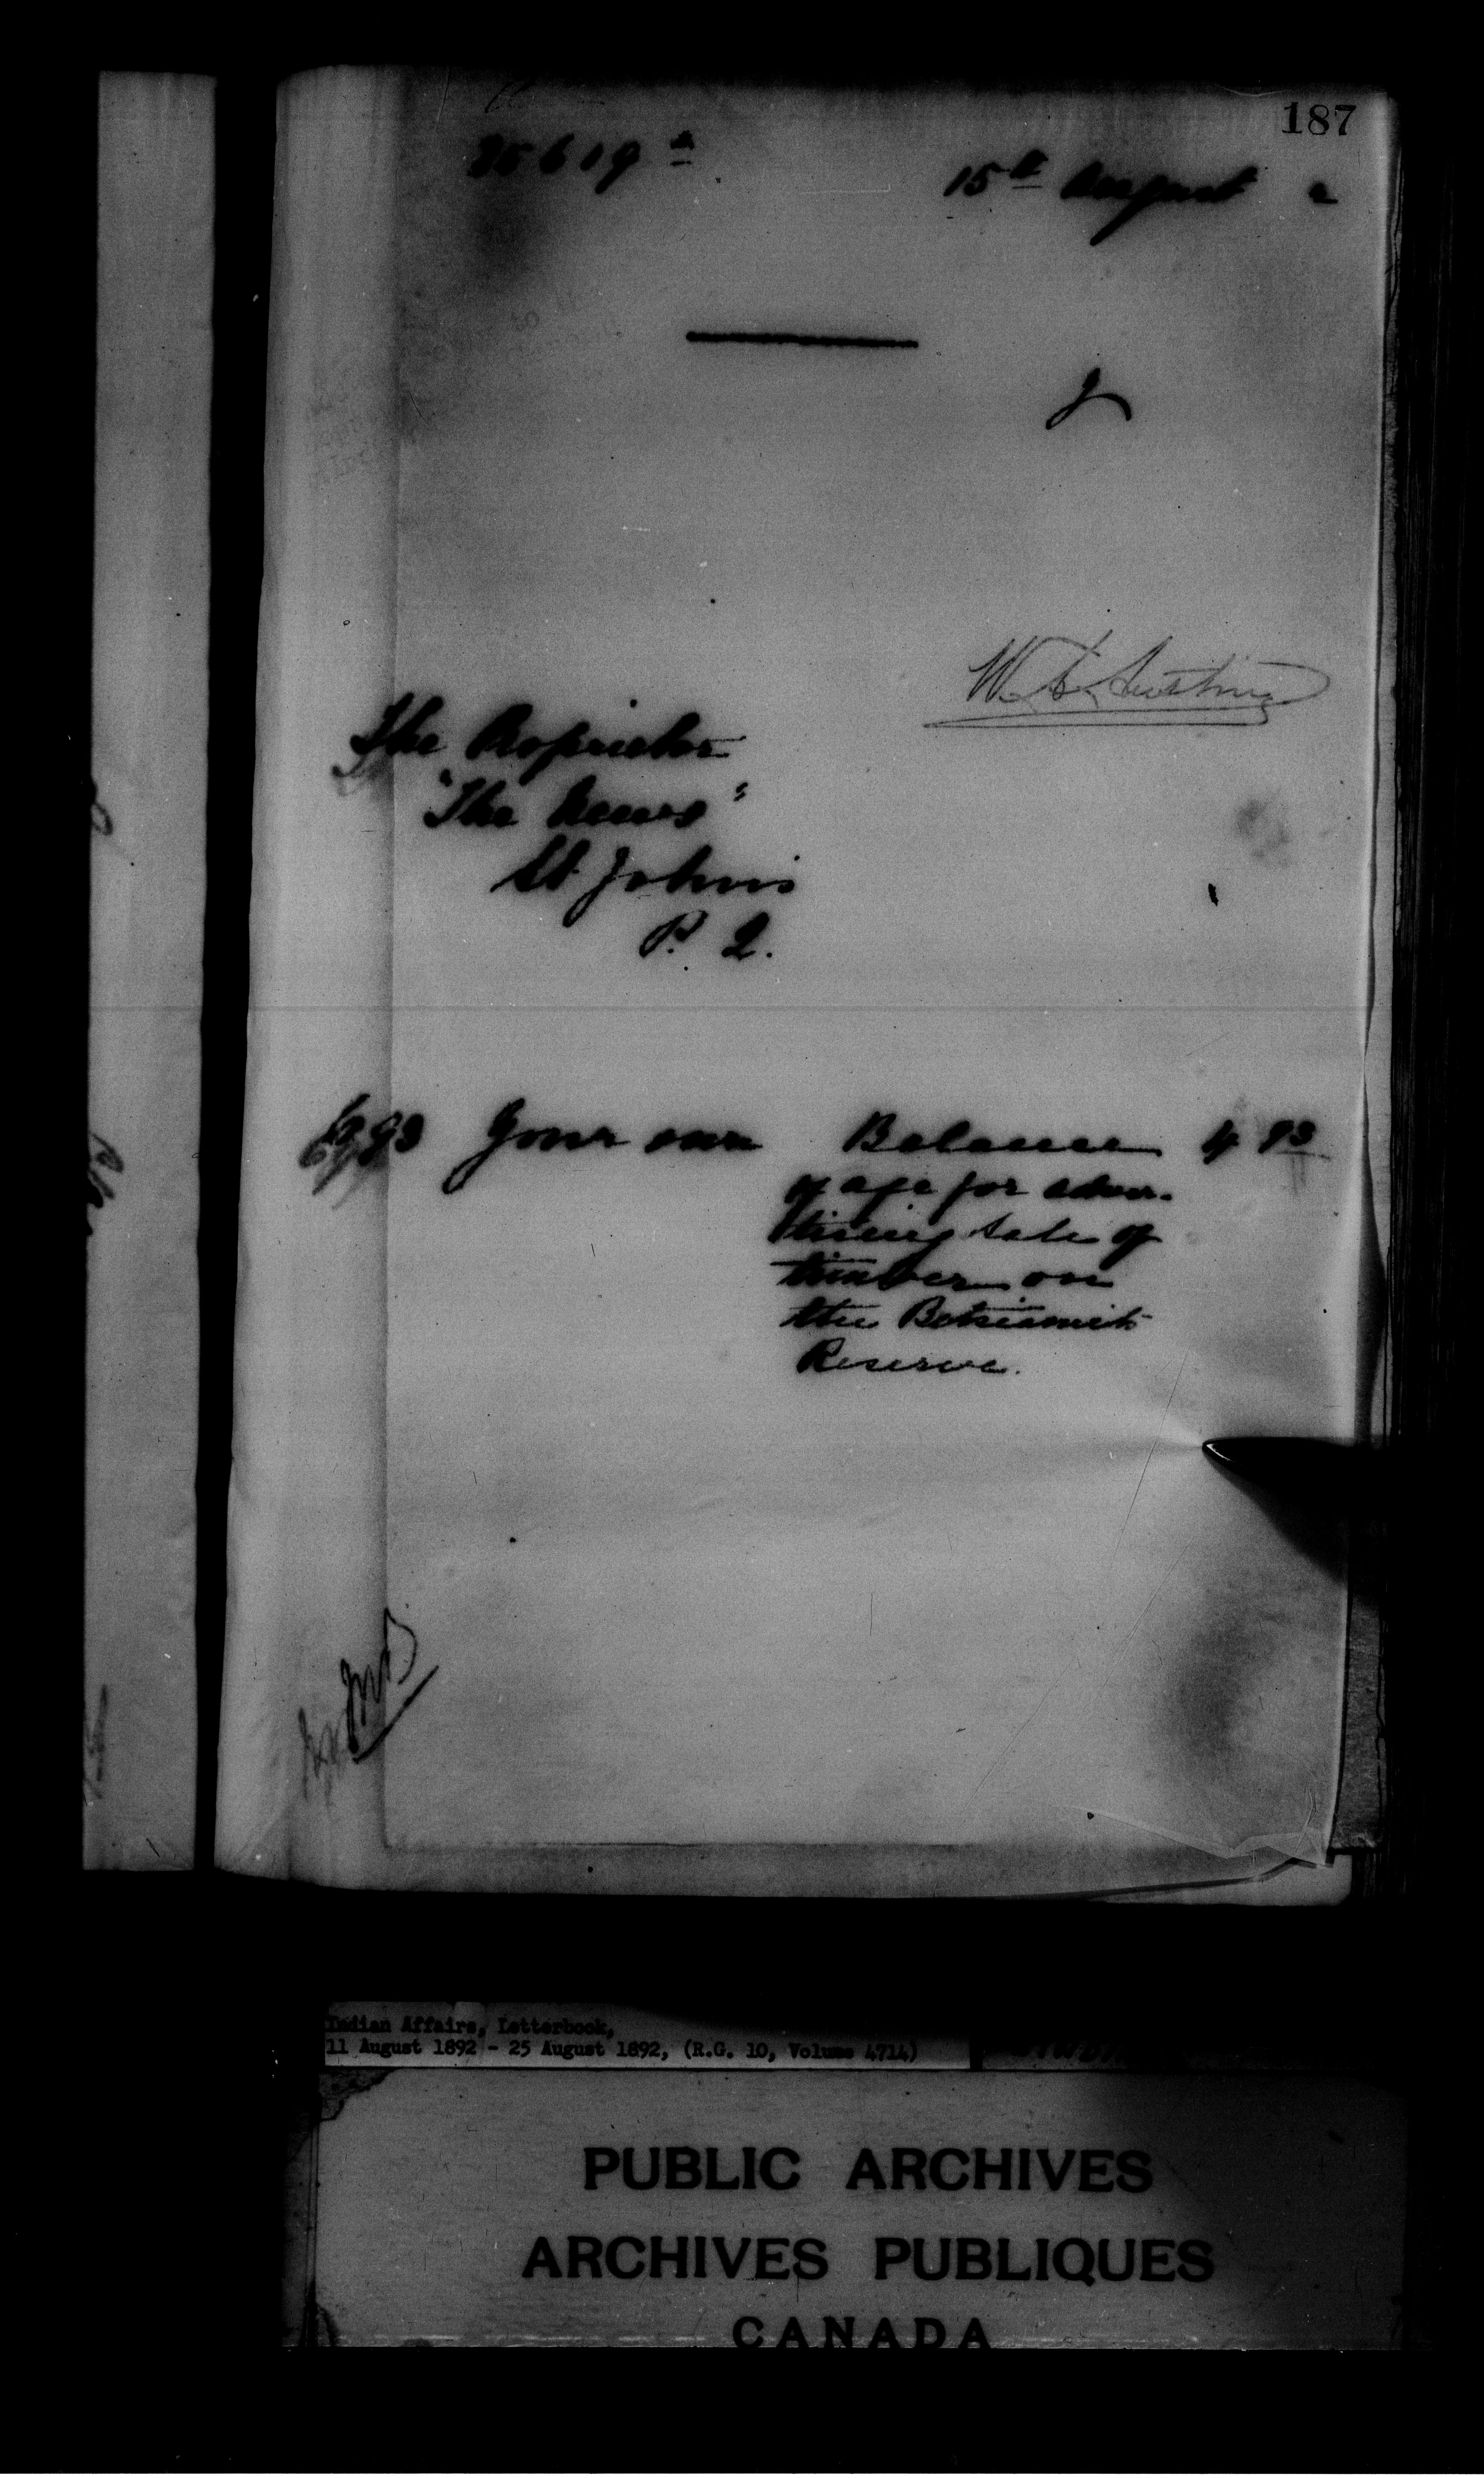 187
15th August 2
W. A. Austin
The Proprietor
"The News"
St. Johns
P. Q.
693 Your own Balance 4 93
of a/c for adver-
tising sale of
timber on
the Betsiamits
Reserve.
Indian Affairs, Letterbook,
11 August 1892 - 25 August 1892, (R.G. 10, Volume 4714)
PUBLIC ARCHIVES
ARCHIVES PUBLIQUES
CANADA